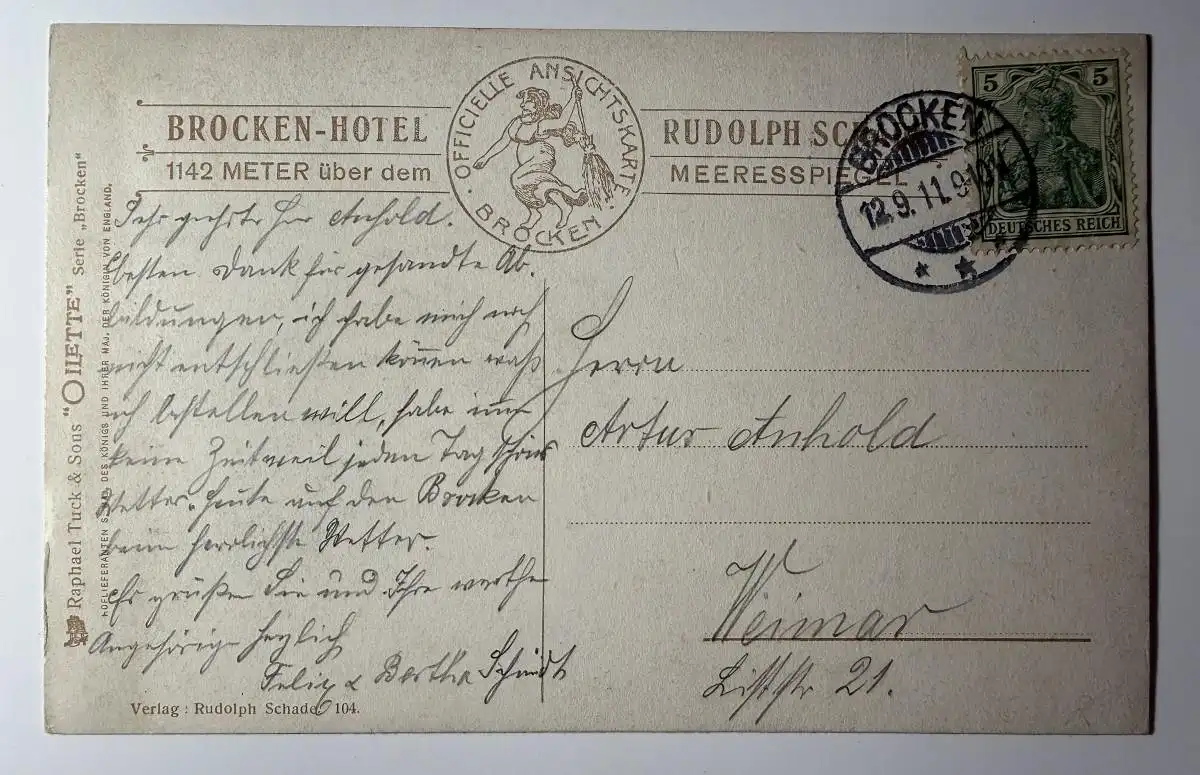 BROCKEN-HOTEL
1142 METER über dem
OFFICIELLE ANSICHTSKARTE
BROCKEN
RUDOLPH SC
MEERESSPIEGEL
BROCKEN
12.9.11.9-10V
5 5
DEUTSCHES REICH
Sehr geehrter Herr Anhold.
Besten Dank für gesandte Ab-
bildungen, ich habe mich noch
nicht entschließen können waß
ich bestellen will, habe
keine Zeit weil jeden Tag schön
Wetter. Heute auf den Brocken
beim herrlichste Wetter.
Es grüßen Sie und Ihre werthe
Angehörige herzlich
Felix & Bertha Schmidt
Herrn
Artur Anhold
Weimar
Liststr 21.
Raphael Tuck & Sons "OILETTE" Serie „Brocken"
HOFLIEFERANTEN S. MAJ. DES KÖNIGS UND IHRER MAJ. DER KÖNIGIN VON ENGLAND.
Verlag: Rudolph Schade 104.